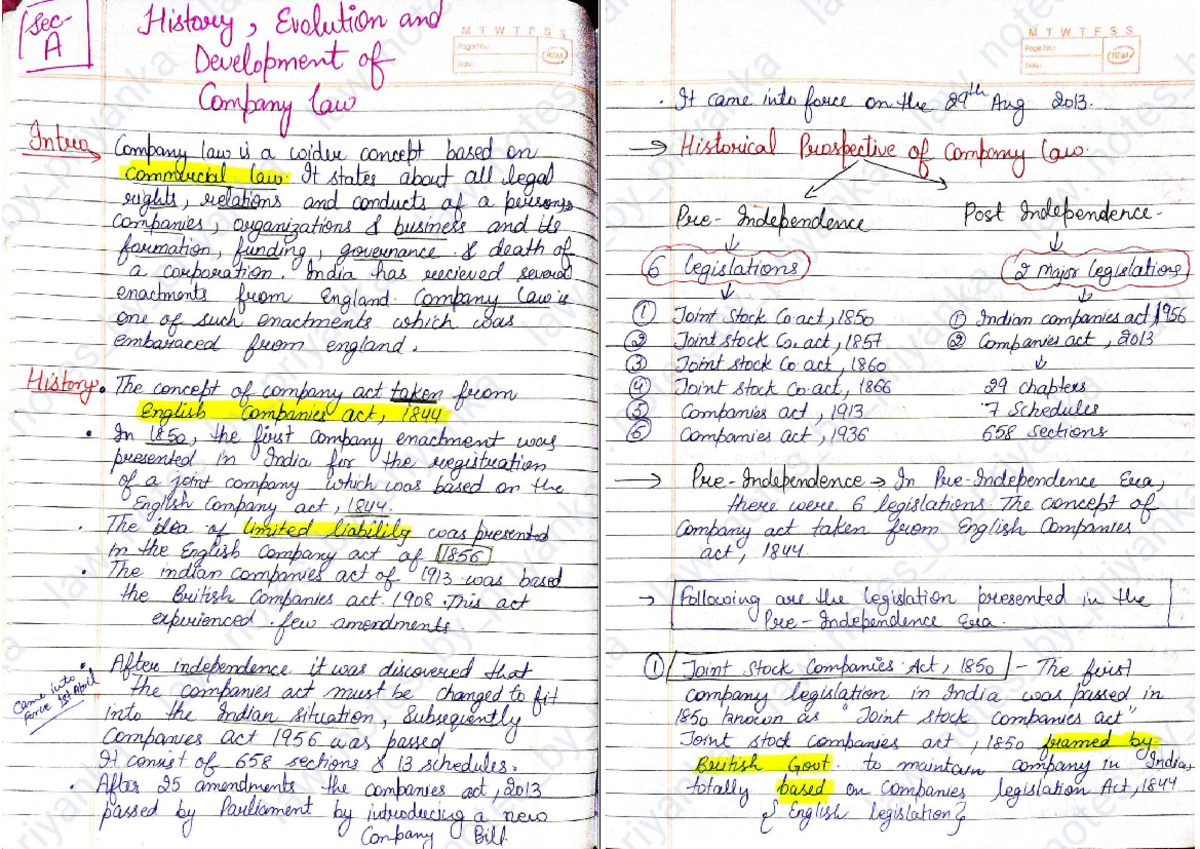 Sec-
A
History, Evolution and
Development of
Company law
M T W T F S S
Page No.:
Date:
Intro
Company law is a wider concept based on
commercial law. It states about all legal
rights, relations and conducts of a persons,
companies, organizations & business and its
formation, funding, governance & death of
a corporation. India has recieved several
enactments from England. Company law is
one of such enactments which was
embaraced from england.
History
• The concept of company act taken from
English Companies act, 1844
• In 1850, the first company enactment was
presented in India for the registration
of a joint company which was based on the
English Company act, 1844.
• The idea of limited liability was presented
in the English Company act of 1856
• The indian companies act of 1913 was based
the British Companies act 1908. This act
experienced few amendments.
• After independence it was discovered that
the companies act must be changed to fit
into the Indian situation, Subsequently
Companies Act 1956 was passed
came into
force 1st April
It consist of 658 sections & 13 schedules.
• After 25 amendments the companies act, 2013
passed by Parliament by introducing a new
Company Bill
M T W T F S S
Page No.:
Date:
• It came into force on the 29th Aug 2013.
→ Historical Prospective of Company law.
Pre-Independence
Post Independence-
6 legislations
2 Major legislations
① Joint Stock Co act, 1850
② Joint stock Co. act, 1857
③ Joint stock Co act, 1860
④ Joint Stock Co. act, 1866
⑤ Companies act, 1913
⑥ Companies act, 1936
① Indian companies act, 1956
② Companies act, 2013
29 chapters
7 Schedules
658 sections
→ Pre-Independence → In Pre-Independence Era,
there were 6 legislations. The concept of
Company act taken from English Companies
act, 1844
→ Following are the legislation presented in the
Pre-Independence Era.
① Joint Stock Companies Act, 1850 - The first
company legislation in India was passed in
1850 known as "Joint stock companies act"
Joint stock companies act, 1850 framed by
British Govt. to maintain company in India,
totally based on Companies legislation Act, 1844
{ English legislation}
law_notes_by_priyanka